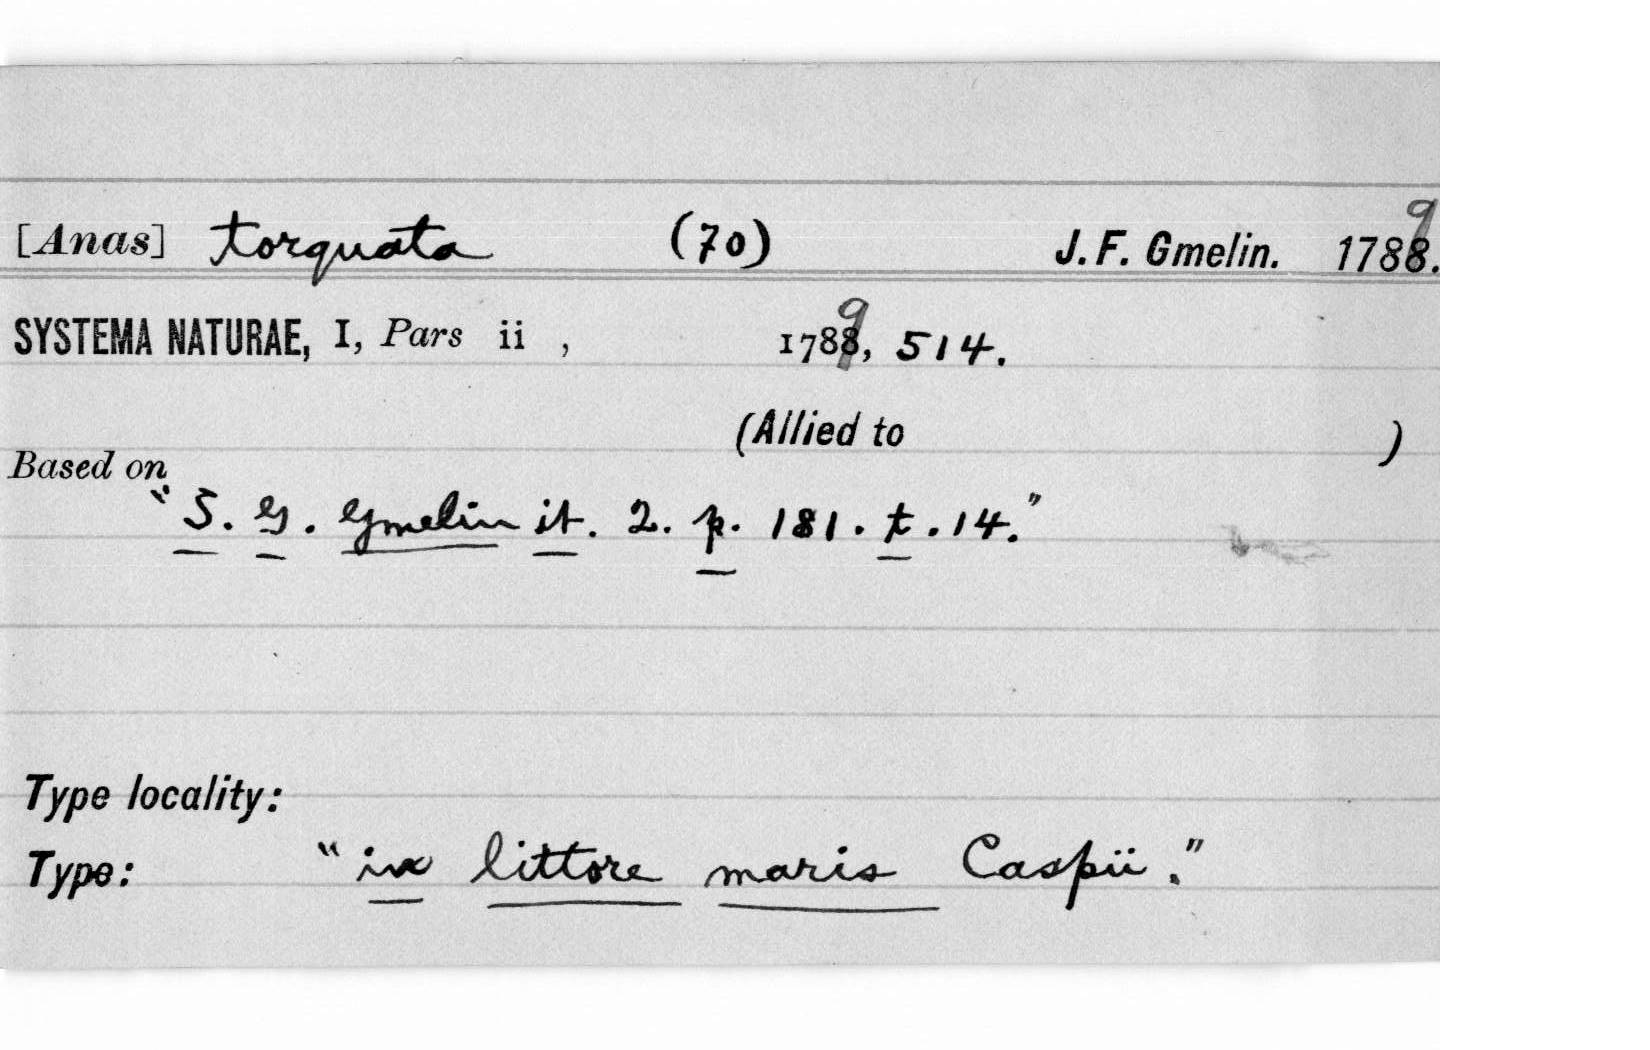 [Anas] torquata (70) J. F. Gmelin. 1789.
SYSTEMA NATURAE, I, Pars ii , 1789, 514.
(Allied to )
Based on
"S. G. Gmelin it. 2. p. 181. t. 14."
Type locality:
Type: "in littore maris Caspii."